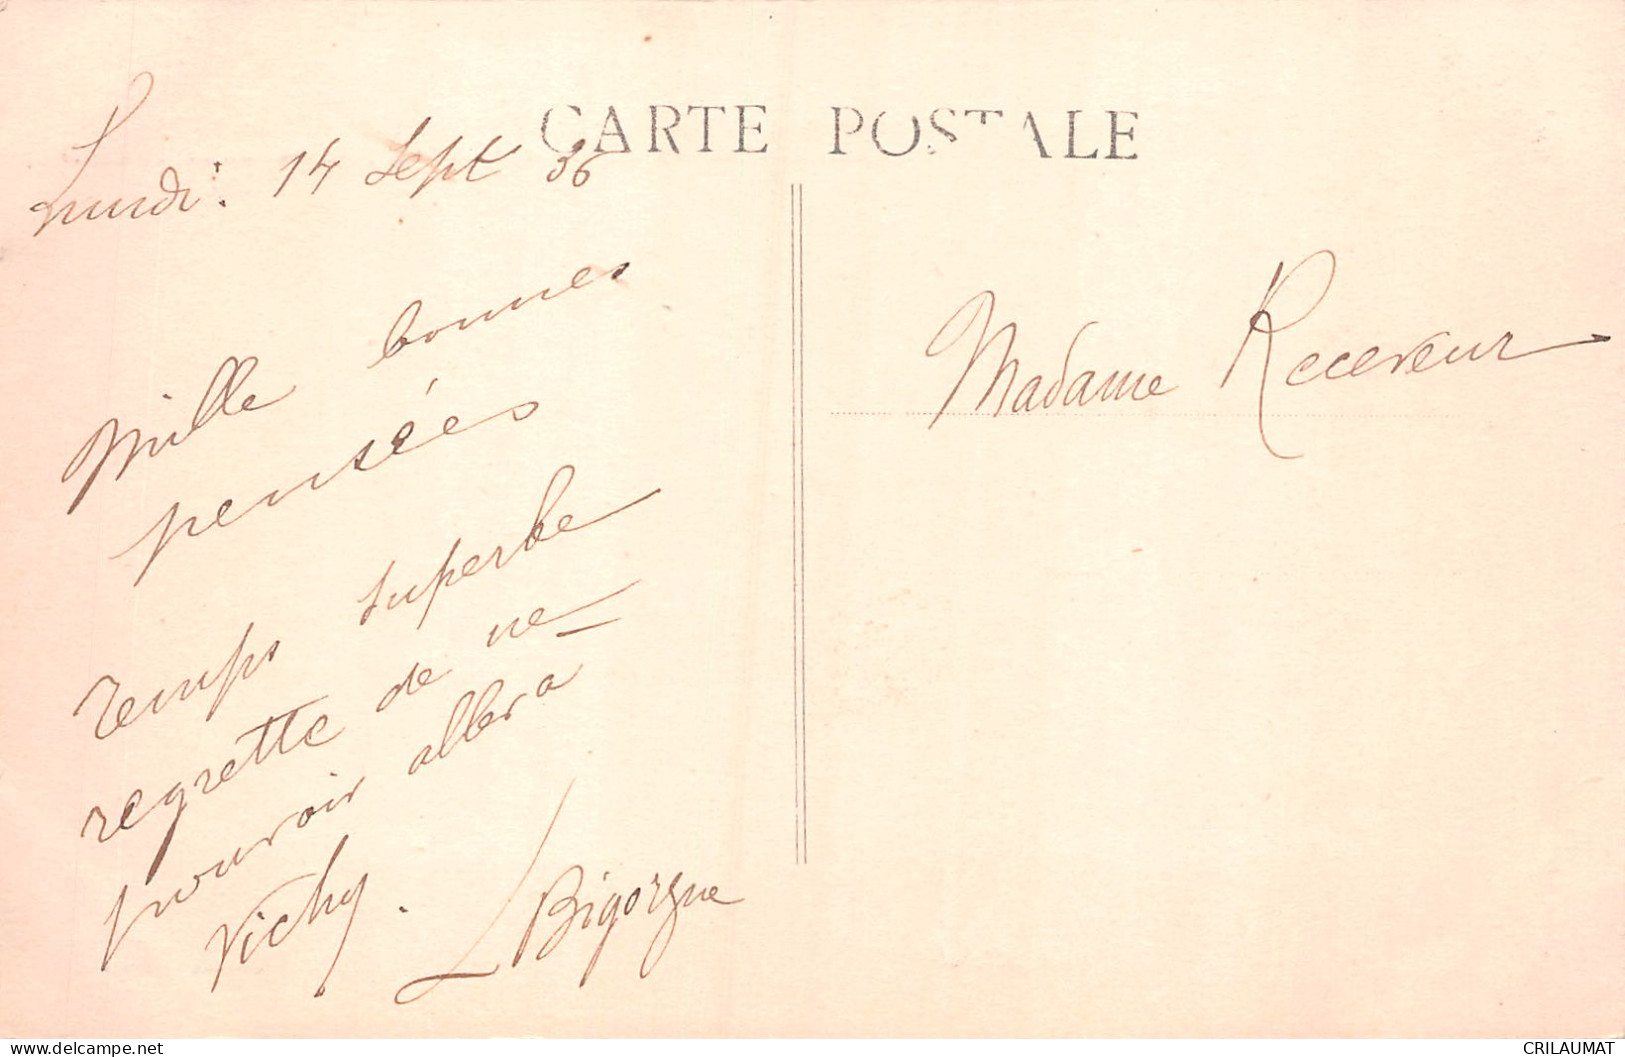 CARTE POSTALE
Lundi. 14 Sept 36
Mille bonnes
pensées
temps superbe
regrette de ne
pouvoir aller a
Vichy.
L Bigorgne
Madame Receveur
www.delcampe.net
CRILAUMAT